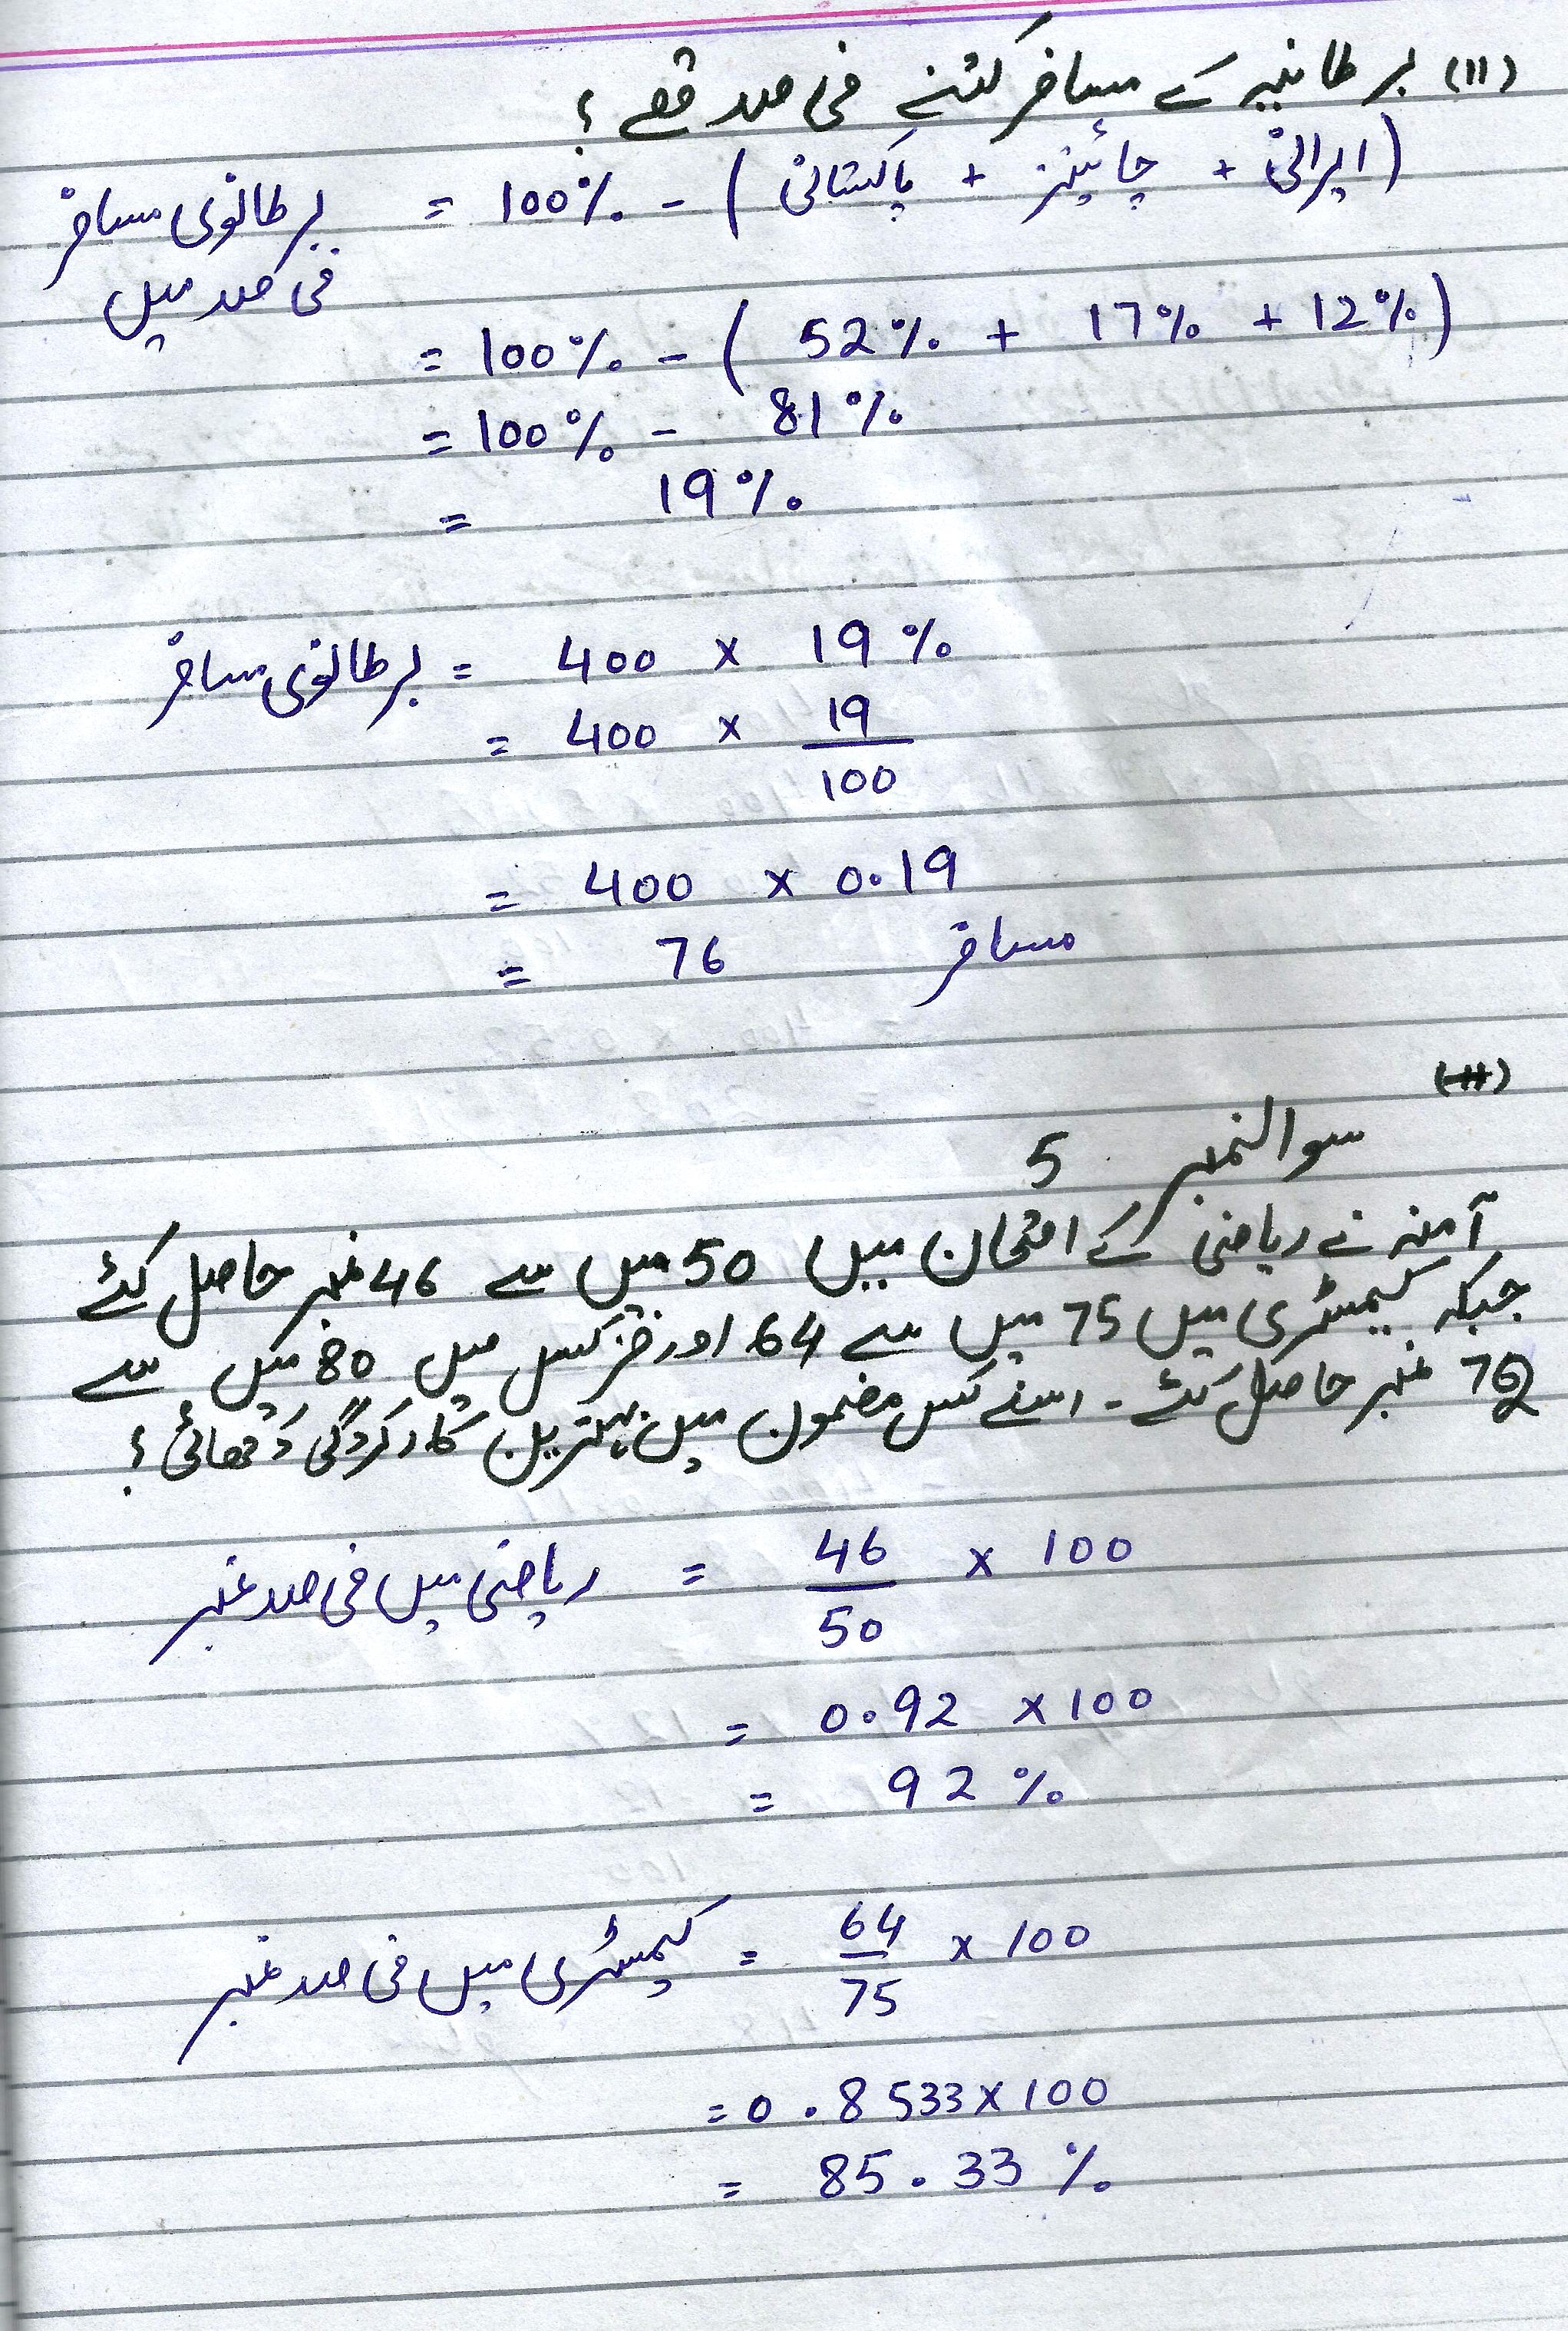 (II) برطانیہ کے مسافر کتنے فی صد تھے ؟
برطانوی مسافر فی صد میں = 100% - (پاکستانی + چائینز + ایرانی)
= 100% - ( 52% + 17% + 12%)
= 100% - 81%
= 19%
برطانوی مسافر = 400 x 19%
= 400 x 19/100
= 400 x 0.19
= 76 مسافر
(II)
سوالنمبر 5
آمنہ نے ریاضی کے امتحان میں 50 میں سے 46 نمبر حاصل کئے
جبکہ کیمسٹری میں 75 میں سے 64 اور فزکس میں 80 میں سے
72 نمبر حاصل کئے ۔ اسنے کس مضمون میں بہترین کارکردگی دکھائی ؟
ریاضی میں فی صد نمبر = 46/50 x 100
= 0.92 x 100
= 92 %
کیمسٹری میں فی صد نمبر = 64/75 x 100
= 0.8533 x 100
= 85.33 %